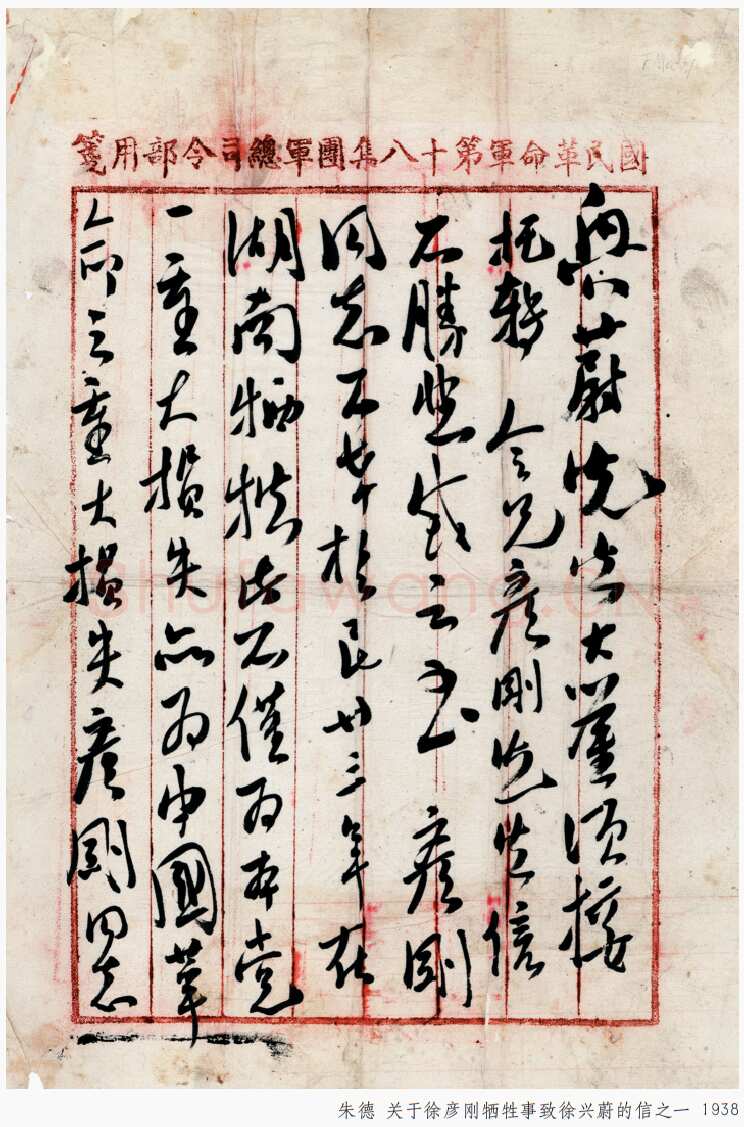 國民革命軍第十八集團軍總司令部用箋
興蔚先生大鑒頃接
托轉 令兄彥剛先生信
不勝悲之至 彥剛
同志不幸於民廿三年在
湖南牺牲此不僅為本党
一重大損失亦為中國革
命之重大損失彥剛同志
Shufawang.CN
朱德 关于徐彦刚牺牲事致徐兴蔚的信之一 1938